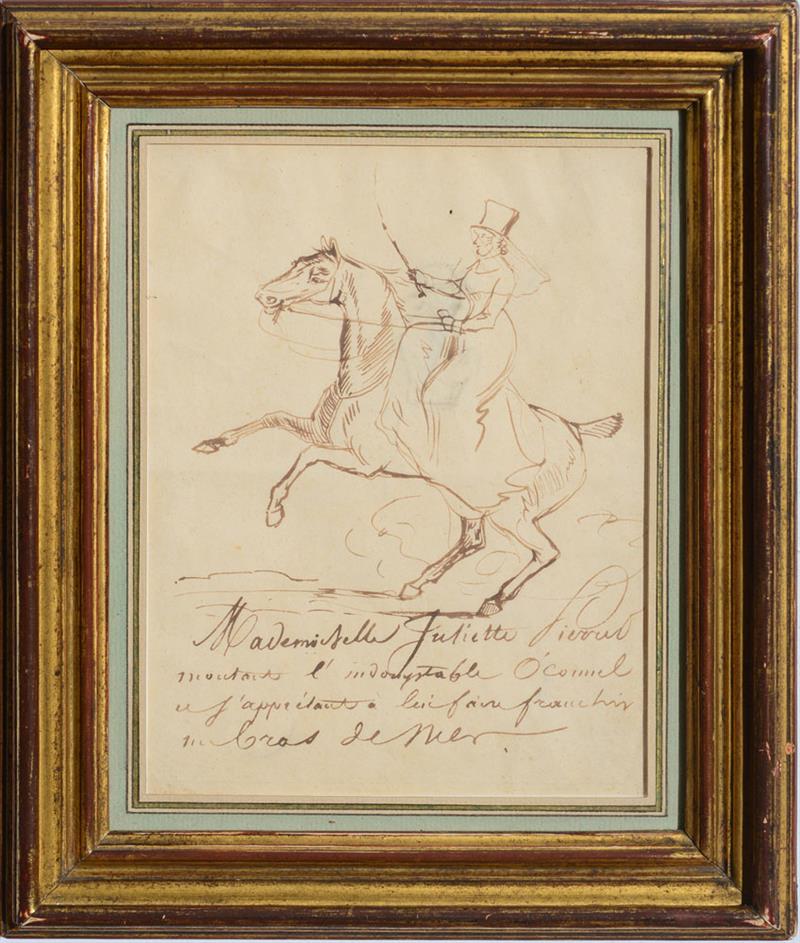 Mademoiselle Juliette Pierret
montant l'indomptable O'connel
et s'apprêtant à lui faire franchir
un bras de Mer.